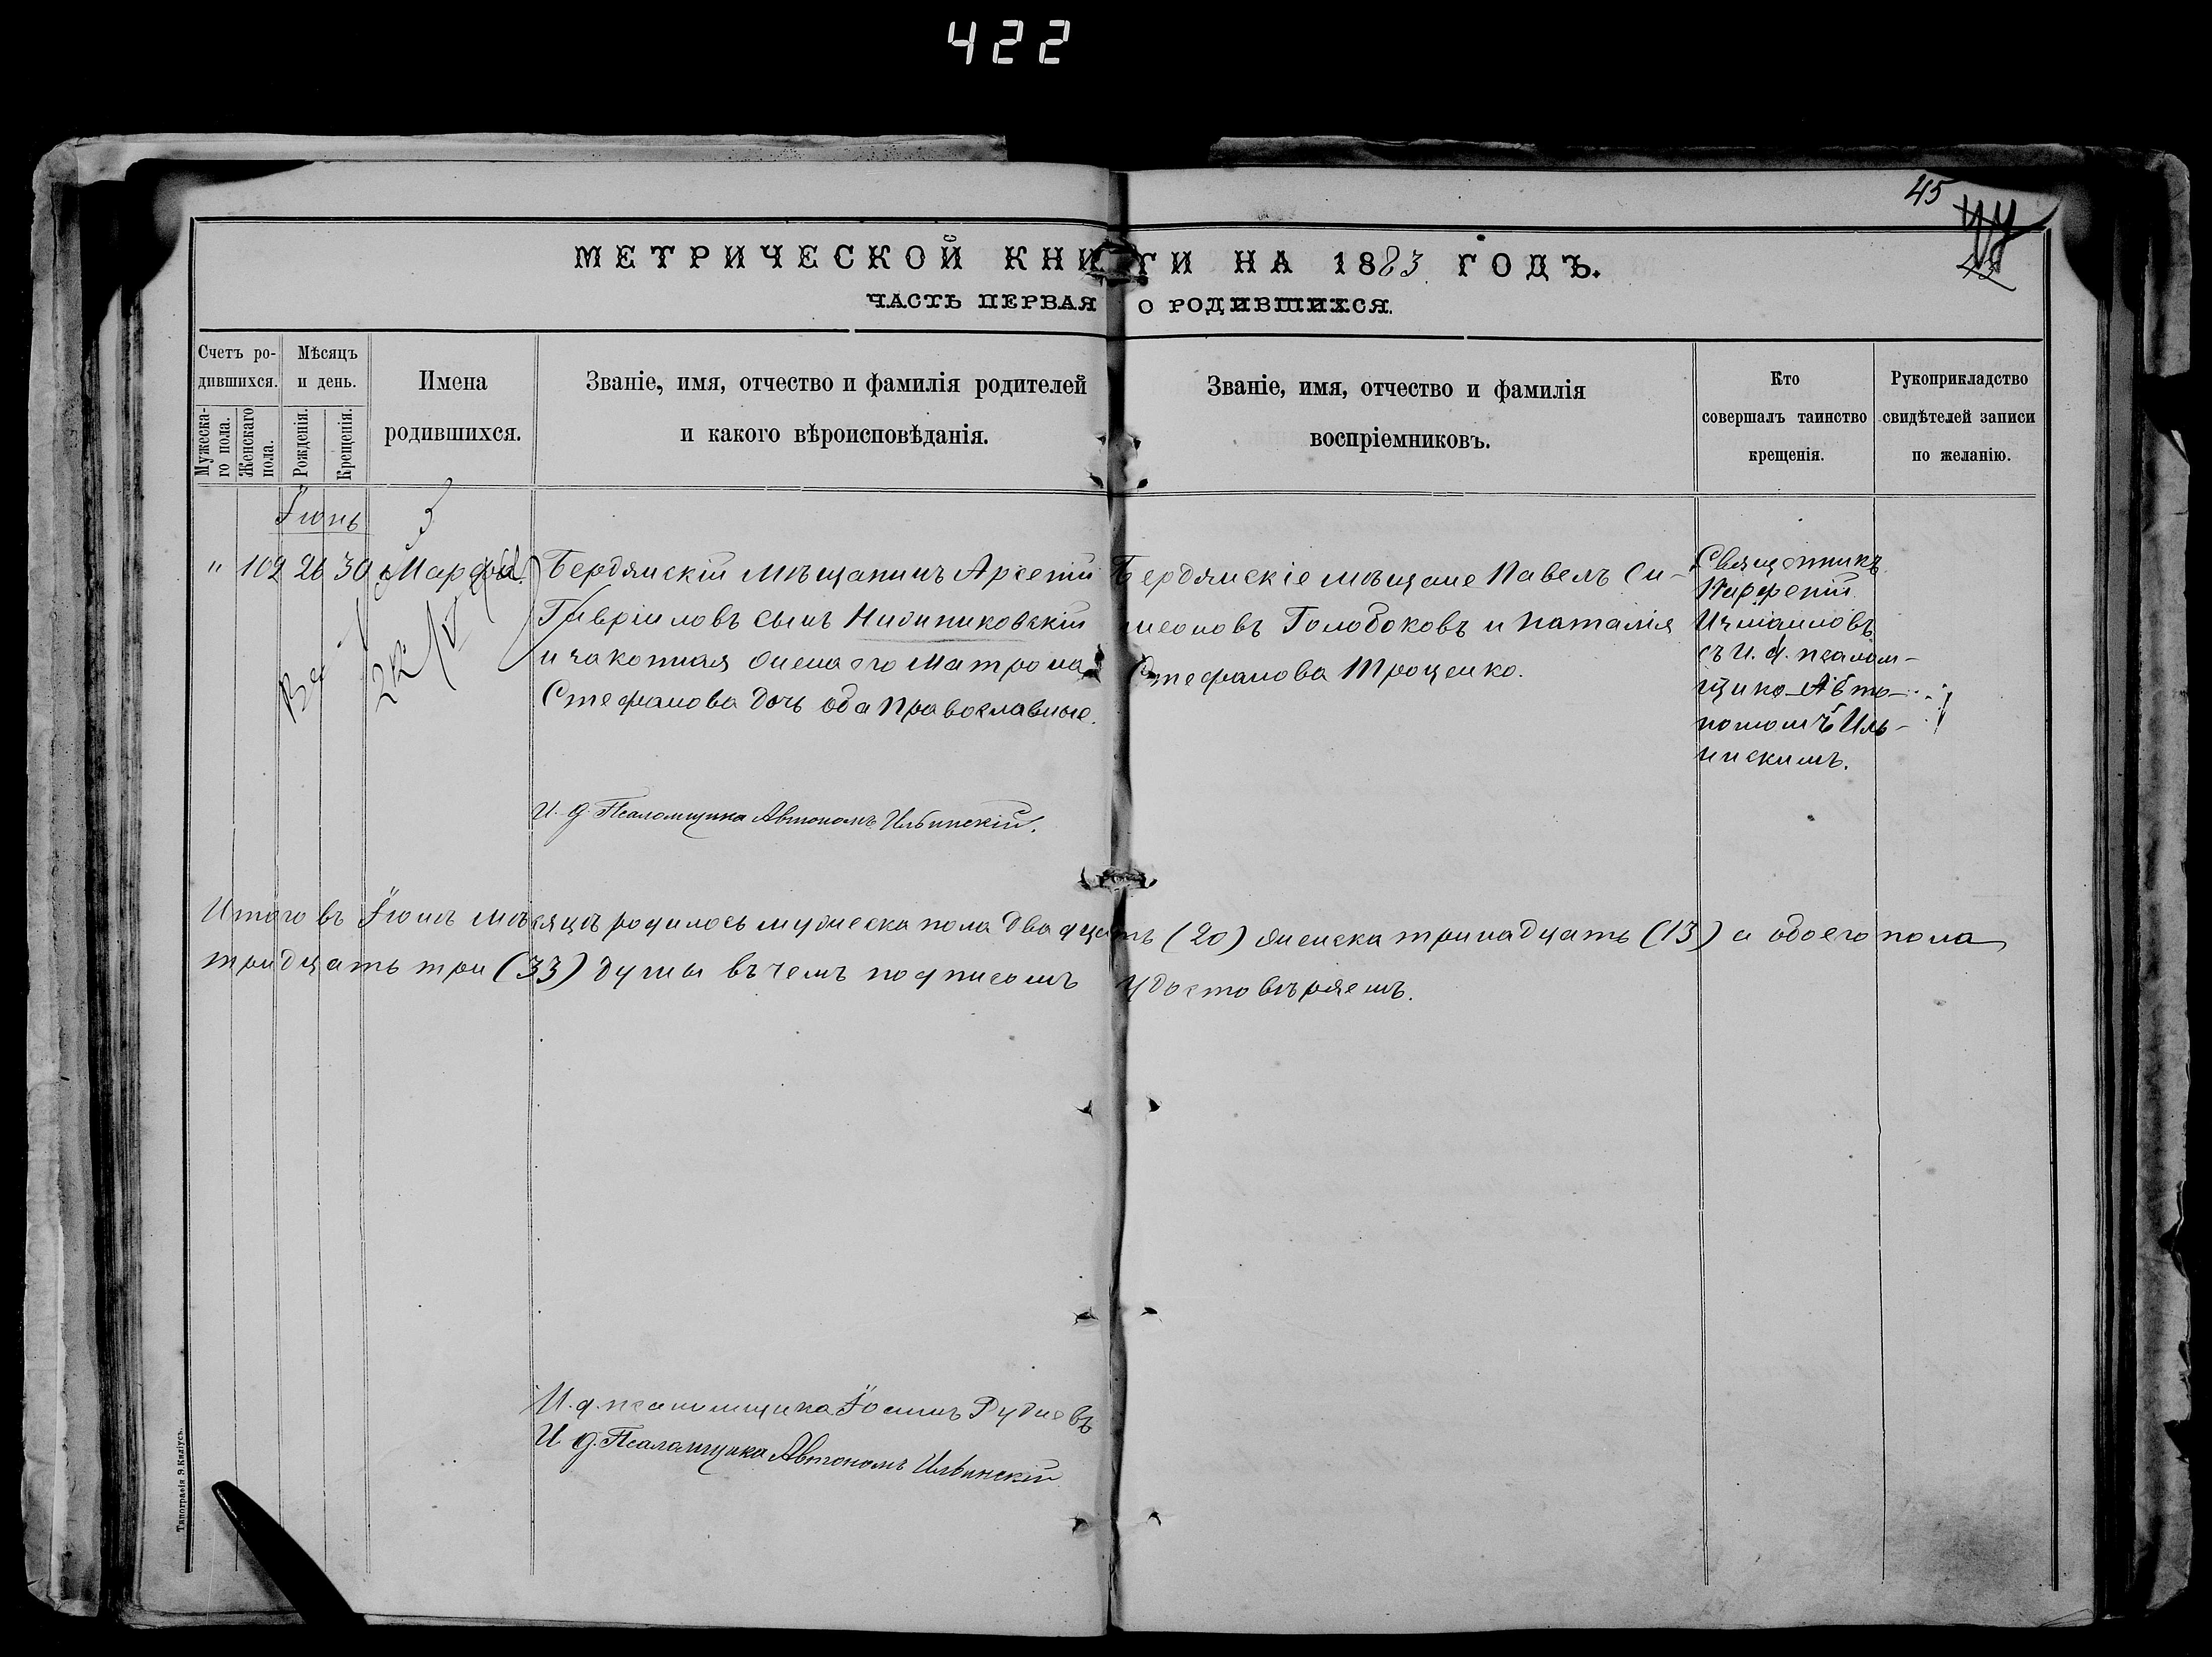 422
45
МЕТРИЧЕСКОЙ КНИГИ НА 1883 ГОДЪ.
ЧАСТЬ ПЕРВАЯ О РОДИВШИХСЯ.
Счетъ ро-
дившихся.
Мужеска-
го пола.
Женскаго
пола.
Мѣсяцъ
и день.
Рожденія.
Крещенія.
Имена
родившихся.
Званіе, имя, отчество и фамилія родителей
и какого вѣроисповѣданія.
Званіе, имя, отчество и фамилія
воспріемниковъ.
Кто
совершалъ таинство
крещенія.
Рукоприкладство
свидѣтелей записи
по желанію.
Іюнь
" 102 26 30 Марфа
Бердянскій мѣщанинъ Арсеній
Гавріиловъ сынъ
и законная жена его Матрона
Стефанова дочь оба православные.
Бердянскіе мѣщане Павелъ Си-
меоновъ Голобоковъ и Наталія
Стефанова Троценко.
Священникъ
Парфеній
Измаиловъ
съ и. д. псалом-
щика Авто-
номомъ Иль-
инскимъ.
И. д. Псаломщика Автономъ Ильинскій.
Итого въ Іюнѣ мѣсяцѣ родилось мужеска пола двадцать (20) женска тринадцать (13) а обоего пола
тридцать три (33) души въ чемъ подписомъ удостовѣряемъ.
И. д. псаломщика Іоаннъ Рудневъ
И. д. Псаломщика Автономъ Ильинскій